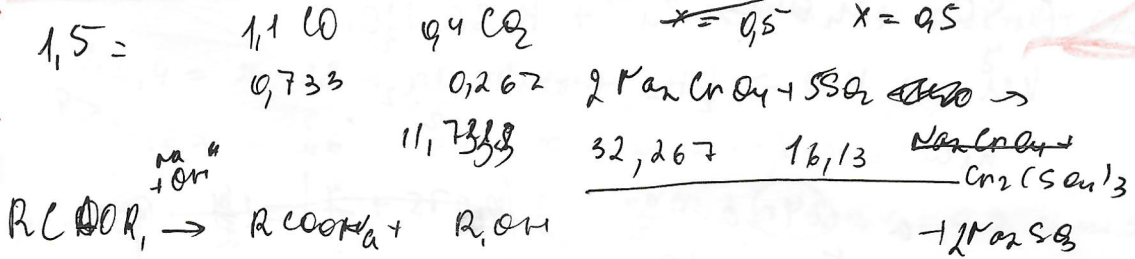 1,5 = 1,1 CO 0,4 CO2 x = 0,5 x = 0,5
0,733 0,267 2Na2CrO4 + 5SO2 →
11,7333 32,267 16,13 Na2CrO4 +
Cr2(SO4)3
Na
+OH
RCOOR1 → RCOONa + R1OH +2Na2SO3